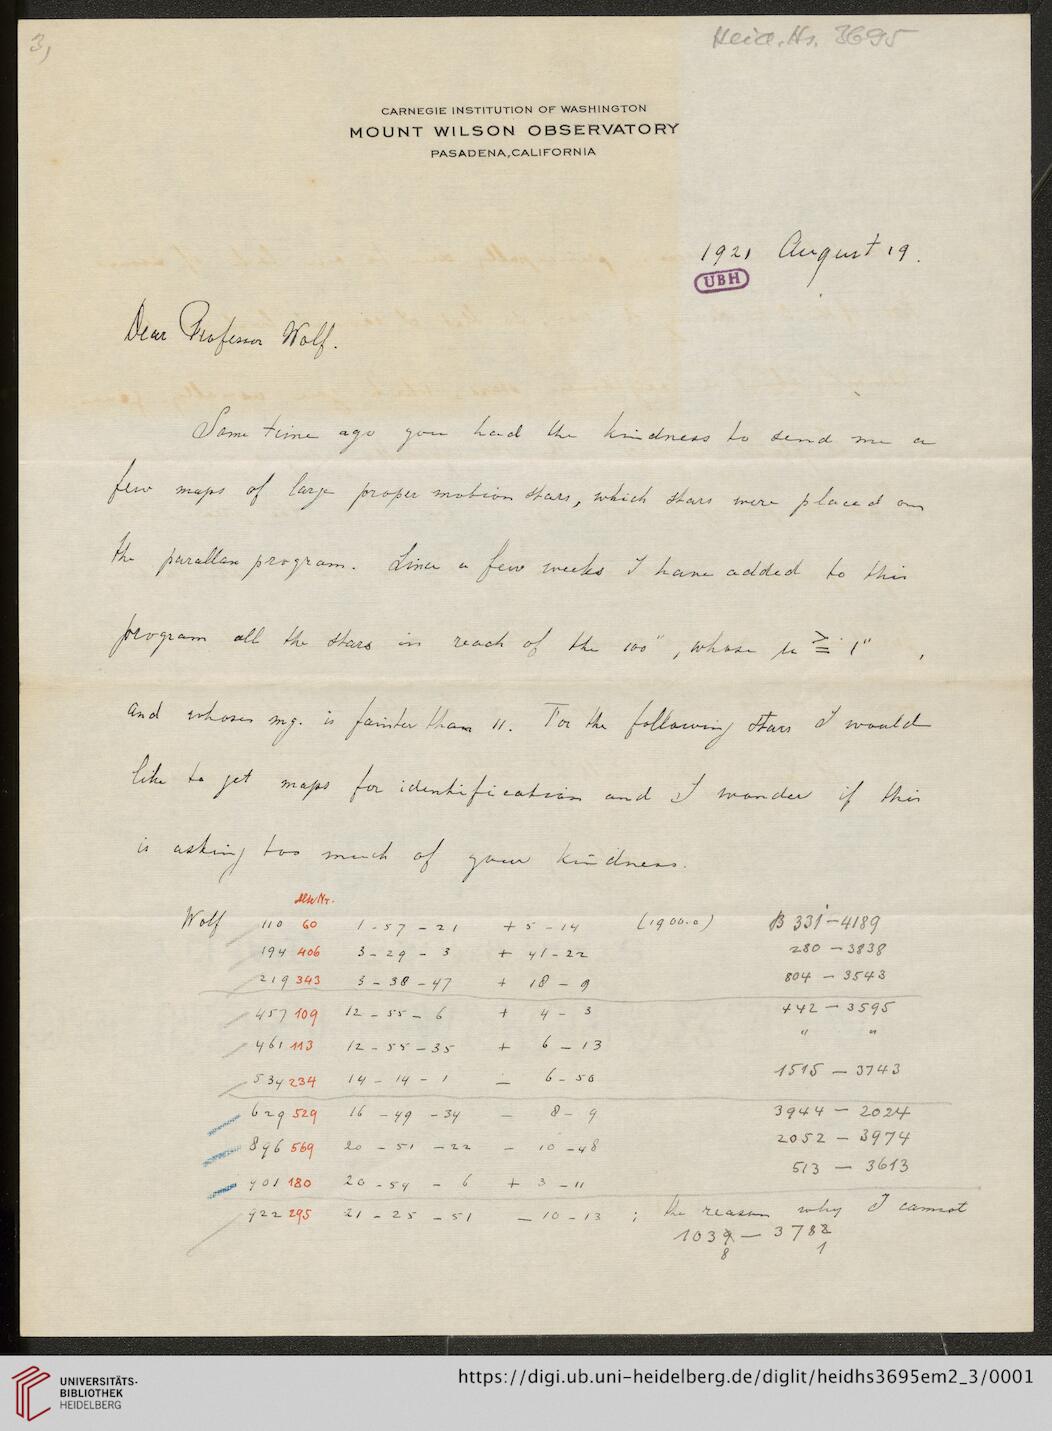 3,
Heid. Hs. 3695
CARNEGIE INSTITUTION OF WASHINGTON
MOUNT WILSON OBSERVATORY
PASADENA, CALIFORNIA
1921 August 19.
UBH
Dear Professor Wolf.
Some time ago you had the kindness to send me a
few maps of large proper motion stars, which stars were placed on
the parallax program. Since a few weeks I have added to this
program all the stars in reach of the 100", whose μ ≧ 1",
and whose mg. is fainter than 11. For the following stars I would
like to get maps for identification and I wonder if this
is asking too much of your kindness.
Nr.
Wolf 110 60 1 - 57 - 21 + 5 - 14 (1900.0) B 331 - 4189
194 406 3 - 29 - 3 + 41 - 22 280 - 3838
219 343 3 - 38 - 47 + 18 - 9 804 - 3543
457 109 12 - 55 - 6 + 4 - 3 442 - 3595
461 113 12 - 55 - 35 + 6 - 13 " "
534 234 14 - 14 - 1 - 6 - 50 1515 - 3743
629 529 16 - 49 - 34 - 8 - 9 3944 - 2024
896 569 20 - 51 - 22 - 10 - 48 2052 - 3974
901 180 20 - 54 - 6 + 3 - 11 513 - 3613
922 295 21 - 25 - 51 - 10 - 13 ; the reason why I cannot
1039 - 3782
8 1
UNIVERSITÄTS-
BIBLIOTHEK
HEIDELBERG
https://digi.ub.uni-heidelberg.de/diglit/heidhs3695em2_3/0001